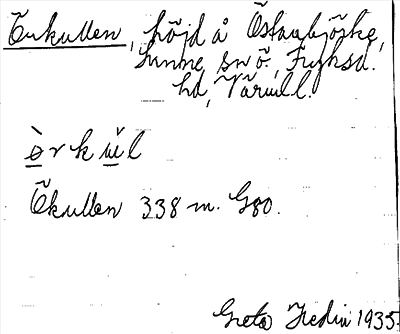 Örkullen, höjd å Östanbjörke,
Sunne snö., Fryksd.
hd, Värml.
ò̱ r k ŭ̱ l
Ökullen 338 m. G80.
Greta Hedin 1935.